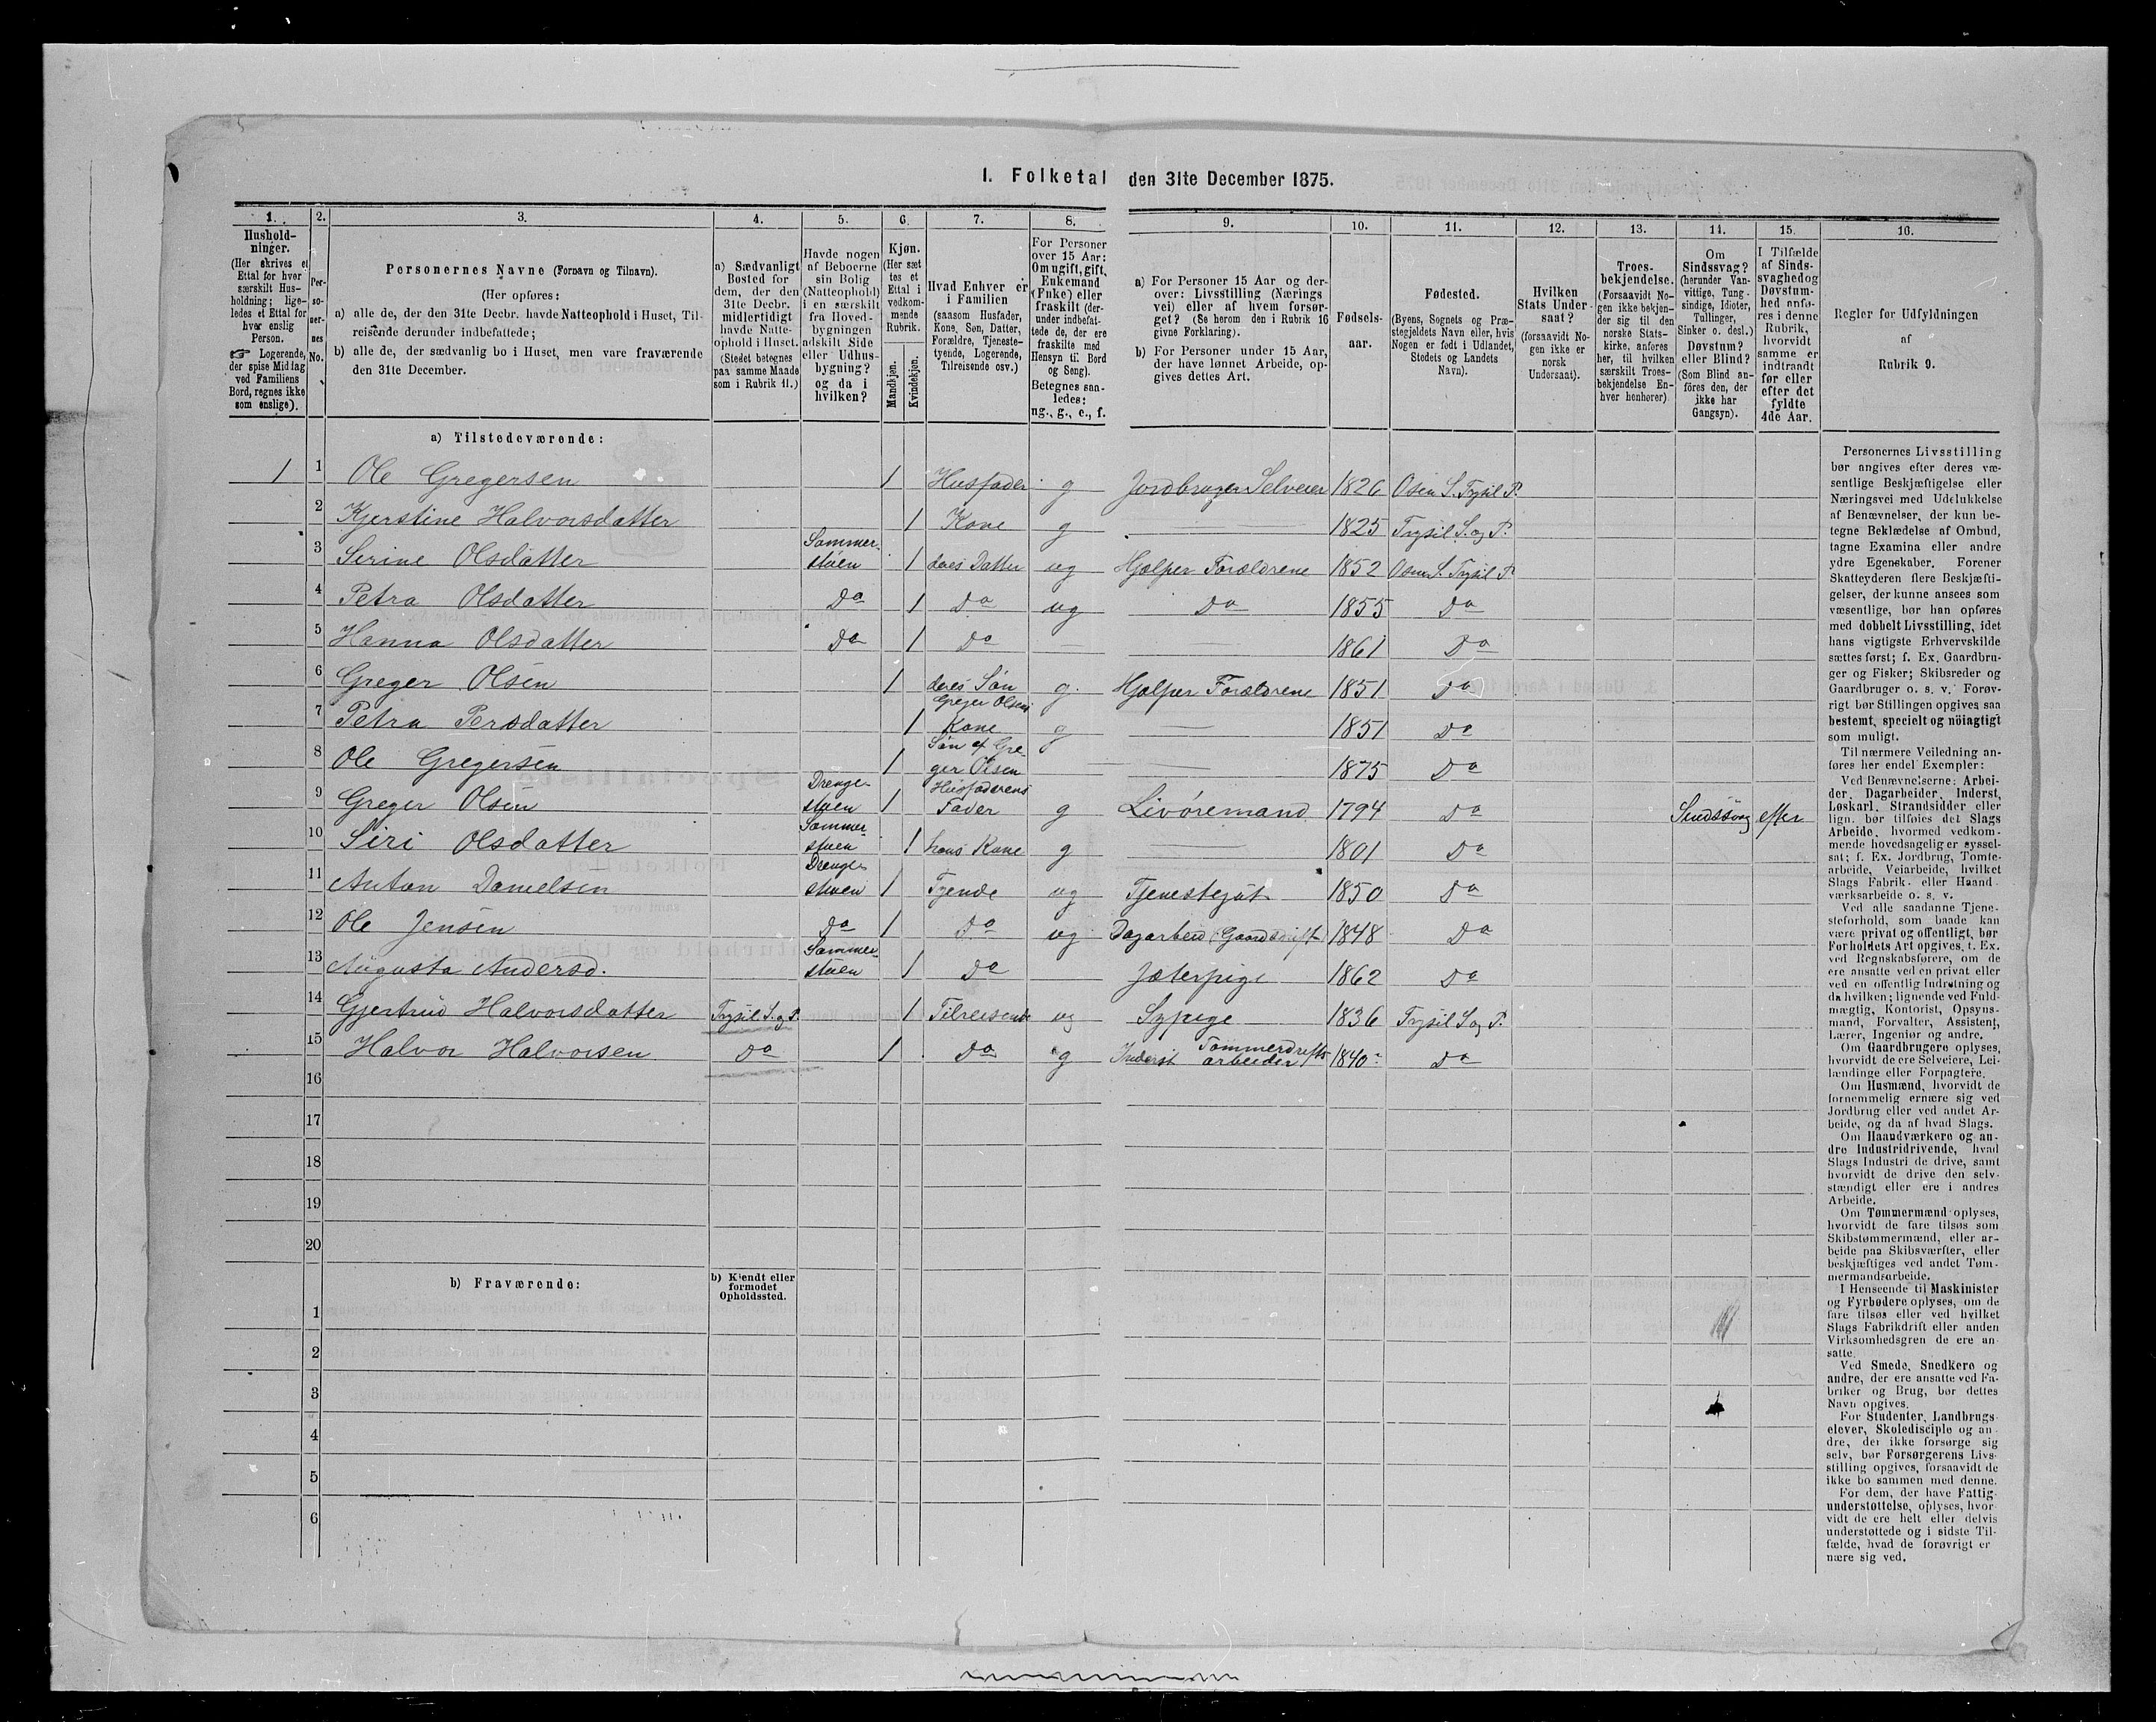 I. Folketal den 31te December 1875.
1. 2. 3. 4. 5. 6. 7. 8. 9. 10. 11. 12. 13. 14. 15. 16.
Hushold-
ninger.
(Her skrives et
Ettal for hver
særskilt Hus-
holdning; lige-
ledes et Ettal for
hver enslig
Person.
☞ Logerende,
der spise Middag
ved Familiens
Bord, regnes ikke
som enslige).
Per-
so-
ner-
nes
No.
Personernes Navne (Fornavn og Tilnavn).
(Her opføres:
a) alle de, der den 31te Decbr. havde Natteophold i Huset, Til-
reisende derunder indbefattede;
b) alle de, der sædvanlig bo i Huset, men vare fraværende
den 31te December.
a) Sædvanligt
Bosted for
dem, der den
31te Decbr.
midlertidigt
havde Natte-
ophold i Huset.
(Stedet betegnes
paa samme Maade
som i Rubrik 11.)
Havde nogen
af Beboerne
sin Bolig
(Natteophold)
i en særskilt
fra Hoved-
bygningen
adskilt Side
eller Udhus-
bygning?
og da i
hvilken?
Kjøn.
(Her sæt
tes et
Ettal i
vedkom-
mende
Rubrik.
Mandkjøn.
Kvindekjøn.
Hvad Enhver er
i Familien
(saasom Husfader,
Kone, Søn, Datter,
Forældre, Tjeneste-
tyende, Logerende,
Tilreisende osv.)
For Personer
over 15 Aar:
Om ugift, gift,
Enkemand
(Enke) eller
fraskilt (der-
under indbefat-
tede de, der ere
fraskilte med
Hensyn til Bord
og Seng).
Betegnes saa-
ledes:
ug., g., e., f.
a) For Personer 15 Aar og der-
over: Livsstilling (Nærings
vei) eller af hvem forsør-
get? (Se herom den i Rubrik 16
givne Forklaring).
b) For Personer under 15 Aar,
der have lønnet Arbeide, op-
gives dettes Art.
Fødsels-
aar.
Fødested.
(Byens, Sognets og Præ-
stegjeldets Navn eller, hvis
Nogen er født i Udlandet,
Stedets og Landets
Navn).
Hvilken
Stats Under-
saat?
(forsaavidt No-
gen ikke er
norsk
Undersaat).
Troes-
bekjendelse.
(Forsaavidt No-
gen ikke bekjen-
der sig til den
norske Stats-
kirke, anføres
her, til hvilken
særskilt Troes-
bekjendelse En-
hver henhører)
Om
Sindssvag?
(herunder Van-
vittige, Tung-
sindige, Idioter,
Tullinger,
Sinker o. desl.)
Døvstum?
eller Blind?
(Som Blind an-
føres den, der
ikke har
Gangsyn).
I Tilfælde
af Sinds-
svaghed og
Døvstum-
hed anfø-
res i denne
Rubrik,
hvorvidt
samme er
indtraadt
før eller
efter det
fyldte
4de Aar.
Regler før Udfyldningen
af
Rubrik 9.
a) Tilstedeværende:
1 1 Ole Gregersen 1 Husfader g Jordbruger Selveier 1826 Osen S. Trysil P.
2 Kjerstine Halvorsdatter 1 Kone g 1825 Trysil S. og P.
3 Serine Olsdatter Sommer-
stuen 1 deres Datter ug Hjælper Forældrene 1852 Osen S. Trysil P.
4 Petra Olsdatter Do 1 Do ug Do 1855 Do
5 Hanna Olsdatter Do 1 Do 1861 Do
6 Greger Olsen 1 deres Søn g. Hjælper Forældrene 1851 Do
7 Petra Persdatter 1 Greger Olsens
Kone g 1851 Do
8 Ole Gregersen 1 Søn af Gre-
ger Olsen 1875 Do
9 Greger Olsen Drenge-
stuen 1 Husfaderens
Fader g Livøremand 1794 Do Sindssvag efter
10 Siri Olsdatter Sommer
stuen 1 hans Kone g 1801 Do
11 Anton Danielsen Drenge-
stuen 1 Tyende ug Tjenestegut 1850 Do
12 Ole Jensen Do 1 Do ug Dagarbeid (Gaardsdrift) 1848 Do
13 Augusta Andersd. Sommer-
stuen 1 Do Jæterpige 1862 Do
14 Gjertrud Halvorsdatter Trysil S. og P. 1 Tilreisende ug Sypige 1836 Trysil S. og P.
15 Halvor Halvorsen Do 1 Do g Inderst Tømmerdrifts
arbeider 1840 Do
16
17
18
19
20
b) Fraværende:
b) Kjendt eller
formodet
Opholdssted.
1
2
3
4
5
6
Personernes Livsstilling
bør angives efter deres væ-
sentlige Beskjæftigelse eller
Næringsvei med Udelukkelse
af Benævnelser, der kun be-
tegne Beklædelse af Ombud,
tagne Examina eller andre
ydre Egenskaber. Forener
Skatteyderen flere Beskjæfti-
gelser, der kunne ansees som
væsentlige, bør han opføres
med dobbelt Livsstilling, idet
hans vigtigste Erhvervskilde
sættes først; f. Ex. Gaardbru-
ger og Fisker; Skibsreder og
Gaardbruger o. s. v. Forøv-
rigt bør Stillingen opgives saa
bestemt, specielt og nöiagtigt
som muligt.
Til nærmere Veiledning an-
føres her endel Exempler:
Ved Benævnelserne: Arbei-
der, Dagarbeider, Inderst,
Løskarl, Strandsidder eller
lign. bør tilføies det Slags
Arbeide, hvormed vedkom-
mende hovedsagelig er syssel-
sat; f. Ex. Jordbrug, Tomte-
arbeide, Veiarbeide, hvilket
Slags Fabrik- eller Haand-
værksarbeide o. s. v.
Ved alle saadanne Tjene-
steforhold, som baade kan
være privat og offentligt, bør
Forholdets Art opgives, t. Ex.
ved Regnskabsførere, om de
ere ansatte ved en privat eller
ved en offentlig Indretning og
da hvilken; lignende ved Fuld-
mægtig, Kontorist, Opsyns-
mand, Forvalter, Assistent,
Lærer, Ingeniør og andre.
Om Gaardbrugere oplyses,
hvorvidt de ere Selveiere, Lei-
lændinge eller Forpagtere.
Om Husmænd, hvorvidt de
fornemmelig ernære sig ved
Jordbrug eller ved andet Ar-
beide, og da af hvad Slags.
Om Haandværkere og an-
dre Industridrivende, hvad
Slags Industri de drive, samt
hvorvidt de drive den selv-
stændigt eller ere i andres
Arbeide.
Om Tømmermænd oplyses,
hvorvidt de fare tilsøs som
Skibstømmermænd, eller ar-
beide paa Skibsværfter, eller
beskjæftiges ved andet Tøm-
mermandsarbeide.
I Henseende til Maskinister
og Fyrbødere oplyses, om de
fare tilsøs eller ved hvilket
Slags Fabrikdrift eller anden
Virksomhedsgren de ere an-
satte.
Ved Smede, Snedkere og
andre, der ere ansatte ved Fa-
briker og Brug, bør dettes
Navn opgives.
For Studenter, Landbrugs-
elever, Skoledisciple og an-
dre, der ikke forsørge sig
selv, bør Forsørgerens Livs-
stilling opgives, forsaavidt de
ikke bo sammen med denne.
For dem, der have Fattig-
understøttelse, oplyses, hvor-
vidt de ere helt eller delvis
understøttede og i sidste Til-
fælde, hvad de forøvrigt er
nære sig ved.